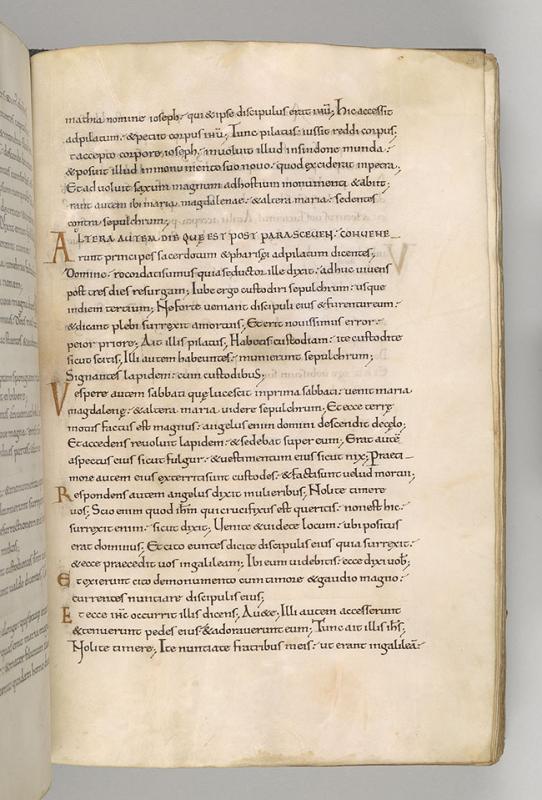 mathia nomine ioseph; qui & ipse discipulus erat ihū; Hic accessit
ad pilatum; & petiit corpus ihū; Tunc pilatus iussit reddi corpus;
& accepto corpore ioseph; inuoluit illud in sindone munda;
& posuit illud in monumento suo nouo; quod exciderat in petra;
Et aduoluit saxum magnum ad hostium monumenti & abiit;
rant autem ibi maria magdalenae; & altera maria; sedentes
contra sepulchrum;
ALTERA AUTEM DIE QUĘ EST POST PARASCEUEN; CONUENE
runt principes sacerdotum & pharisęi ad pilatum dicentes;
Domine; rocordati sumus quia seductor ille dixit; adhuc uiuens
post tres dies resurgam; Iube ergo custodiri sepulchrum; usque
in diem tertium; Ne forte ueniant discipuli eius & furentur eum;
& dicant plebi surrexit a mortuis; Et erit nouissimus error
peior priore; Ait illis pilatus; Habetis custodiam; ite custodite
sicut scitis; Illi autem habeuntes; munierunt sepulchrum;
Signantes lapidem; cum custodibus;
Vespere autem sabbati quę lucescit in prima sabbati; uenit maria
magdalenę; & altera maria uidere sepulchrum; Et ecce terrę
motus factus est magnus; angelus enim domini descendit de cęlo;
Et accedens reuoluit lapidem; & sedebat super eum; Erat autē
aspectus eius sicut fulgur; & uestimentum eius sicut nix; Prae ti
more autem eius exterriti sunt custodes; & facti sunt uelud mortui;
Respondens autem angelus dixit mulieribus; Nolite timere
uos; Scio enim quod ihm̄ qui crucifixus est queritis; non est hic;
surrexit enim; sicut dixit; Uenite & uidete locum; ubi positus
erat dominus; Et cito euntes dicite discipulis eius quia surrexit;
& ecce praecedit uos in galileam; Ibi eum uidebitis; ecce dixi uob;
Et exierunt cito de monumento cum timore & gaudio magno;
currentes nuntiare discipulis eius;
Et ecce ihc occurrit illis dicens; Au&e; Illi autem accesserunt
& tenuerunt pedes eius; & adorauerunt eum; Tunc ait illis ihs;
Nolite timere; Ite nuntiate fratribus meis; ut erant in galileā;